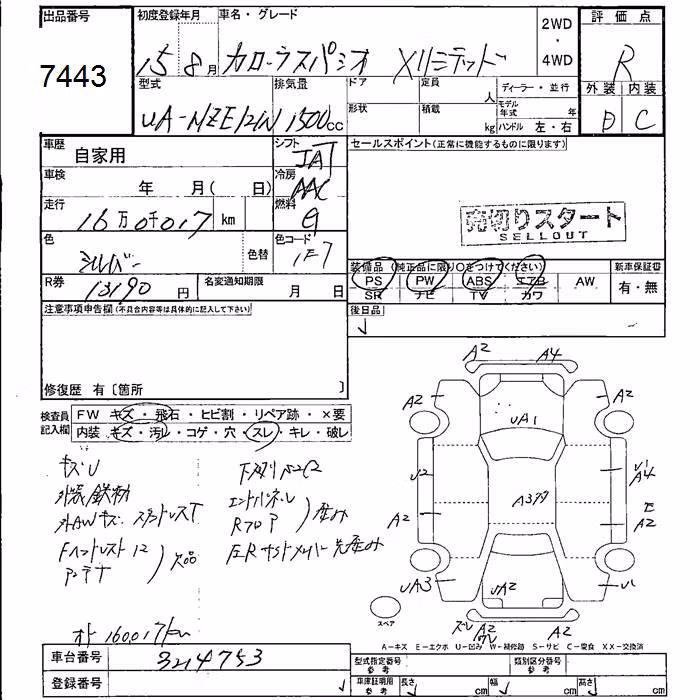 出品番号
7443
初度登録年月
15 8月
車名・グレード
カローラスパシオ Xリミテッド
2WD
・
4WD
評価点
R
外装 内装
D C
型式
UA-NZE121N
排気量
1500cc
ドア
形状
定員
人
積載
kg
ディーラー・並行
モデル年式
年
ハンドル 左・右
車歴
自家用
シフト
IAT
車検
年 月( 日)
冷房
AAC
走行
16万0千017 km
燃料
G
色
シルバー
色替
色コード
1F7
R券
13190円
名変通知期限
月 日
セールスポイント(正常に機能するものに限ります)
売切りスタート
SELLOUT
装備品(純正品に限り○をつけてください)
新車保証書
PS PW ABS エアB AW
有・無
SR ナビ TV カワ
後日品
注意事項申告欄(不具合内容等は具体的に記入して下さい)
修復歴 有〔箇所 〕
検査員記入欄
FW キズ・飛石・ヒビ割・リペア跡・×要
内装 キズ・汚れ・コゲ・穴・スレ・キレ・破レ
キズU
外AWキズ
Fヘッドレスト
アンテナ
欠品
エンドパネル
Rフロア
歪み
オド 160,017km
A2 A4
A2 A2
UA1
U2
A4
A2
A2
UA3
UA2
U1
A2
A2
スペア
A-キズ E-エクボ U-凹み W-補修跡 S-サビ C-腐食 XX-交換済
車台番号
3214753
登録番号
型式指定番号
参考
類別区分番号
参考
車庫証明用
参考
長さ cm 幅 cm 高さ cm